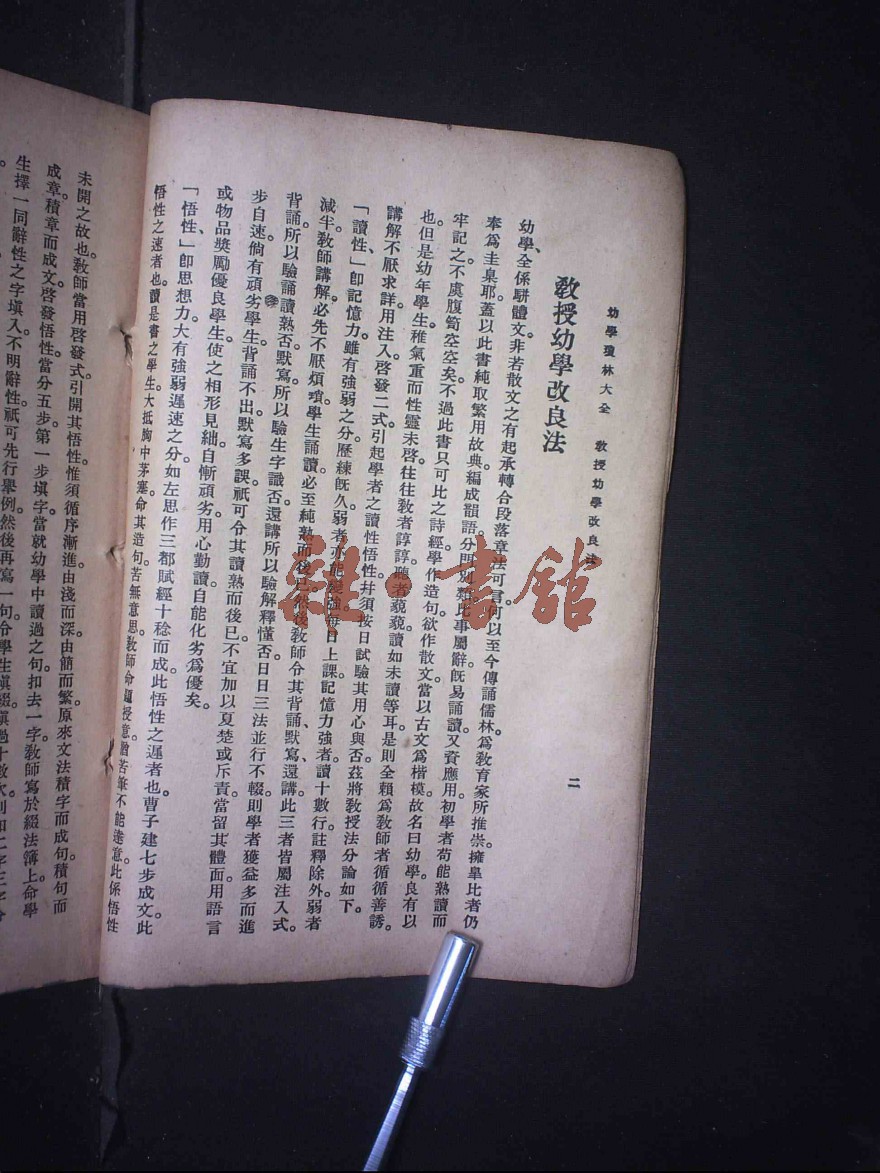 幼學瓊林大全　教授幼學改良法
二
教授幼學改良法
幼學、全係駢體文。非若散文之有起承轉合段落章法可言。何以至今傳誦儒林。爲教育家所推崇。擁皐比者仍
奉爲圭臬耶。蓋以此書純取繁用故典。編成韻語。分門別類。比事屬辭。旣易誦讀。又資應用。初學者苟能熟讀而
牢記之。不虞腹笥空空矣。不過此書只可比之詩經。學作造句。欲作散文。當以古文爲楷模。故名曰幼學。良有以
也。但是幼年學生。稚氣重而性靈未啓。往往教者諄諄。聽者藐藐。讀如未讀等耳。是則全賴爲教師者循循善誘。
講解不厭求詳。用注入啓發二式。引起學者之讀性悟性。幷須按日試驗其用心與否。茲將教授法分論如下。
「讀性」卽記憶力。雖有強弱之分。歷練旣久。弱者亦能變強。每日上課。記憶力強者。讀十數行。註釋除外。弱者
減半。教師講解必先不厭煩瑣。學生誦讀必至純熟而後已。然後教師令其背誦、默寫、還講。此三者皆屬注入式。
背誦所以驗誦讀熟否。默寫所以驗生字識否。還講所以驗解釋懂否。日日三法並行不輟。則學者獲益多而進
步自速。倘有頑劣學生。背誦不出。默寫多誤。祇可令其讀熟而後已。不宜加以夏楚或斥責。當留其體面。用語言
或物品獎勵優良學生。使之相形見絀自慚。頑劣用心勤讀。自能化劣爲優矣。
「悟性」卽思想力。大有強弱遲速之分。如左思作三都賦。經十稔而成。此悟性之遲者也。曹子建七步成文。此
悟性之速者也。讀是書之學生。大抵胸中茅塞。命其造句。苦無意思。教師命題授意。猶苦筆不能達意。此係悟性
未開之故也。教師當用啓發式引開其悟性。惟須循序漸進。由淺而深。由簡而繁。原來文法積字而成句。積句而
成章。積章而成文。啓發悟性。當分五步。第一步塡字。當就幼學中讀過之句。扣去一字。教師寫於綴法簿上。命學
生擇一同辭性之字塡入。不明辭性。祇可先行舉例。然後再寫一句。令學生塡綴。塡過十數次。
雜·書館